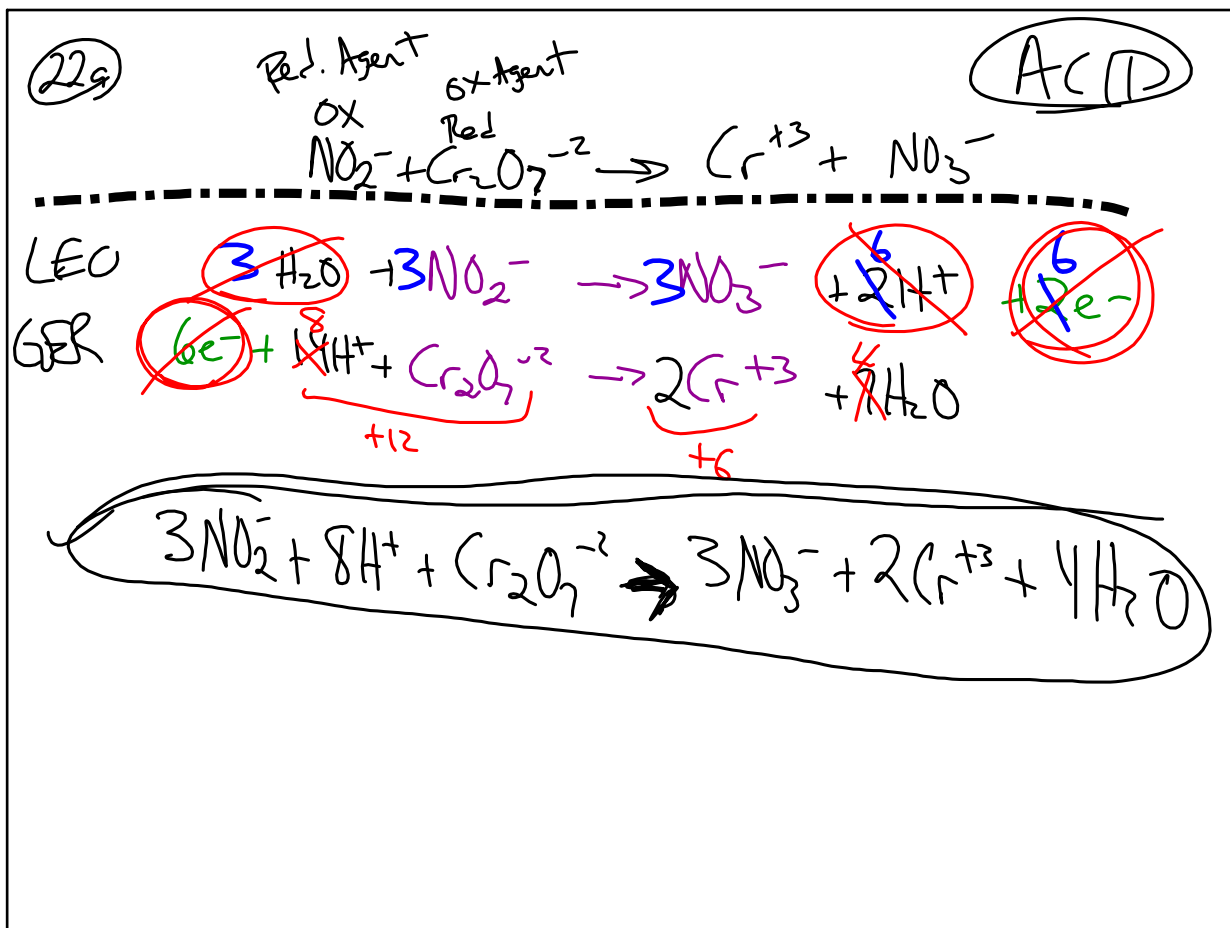 22a
Red. Agent ox Agent ACID
OX Red
NO₂⁻ + Cr₂O₇⁻² → Cr⁺³ + NO₃⁻
LEO 3 H₂O + 3NO₂⁻ → 3NO₃⁻ + 2H⁺ 6 + 2e⁻ 6
GER 6e⁻ + 14H⁺ 8 + Cr₂O₇⁻² → 2Cr⁺³ + 7H₂O 4
+12 +6
3NO₂⁻ + 8H⁺ + Cr₂O₇⁻² → 3NO₃⁻ + 2Cr⁺³ + 4H₂O